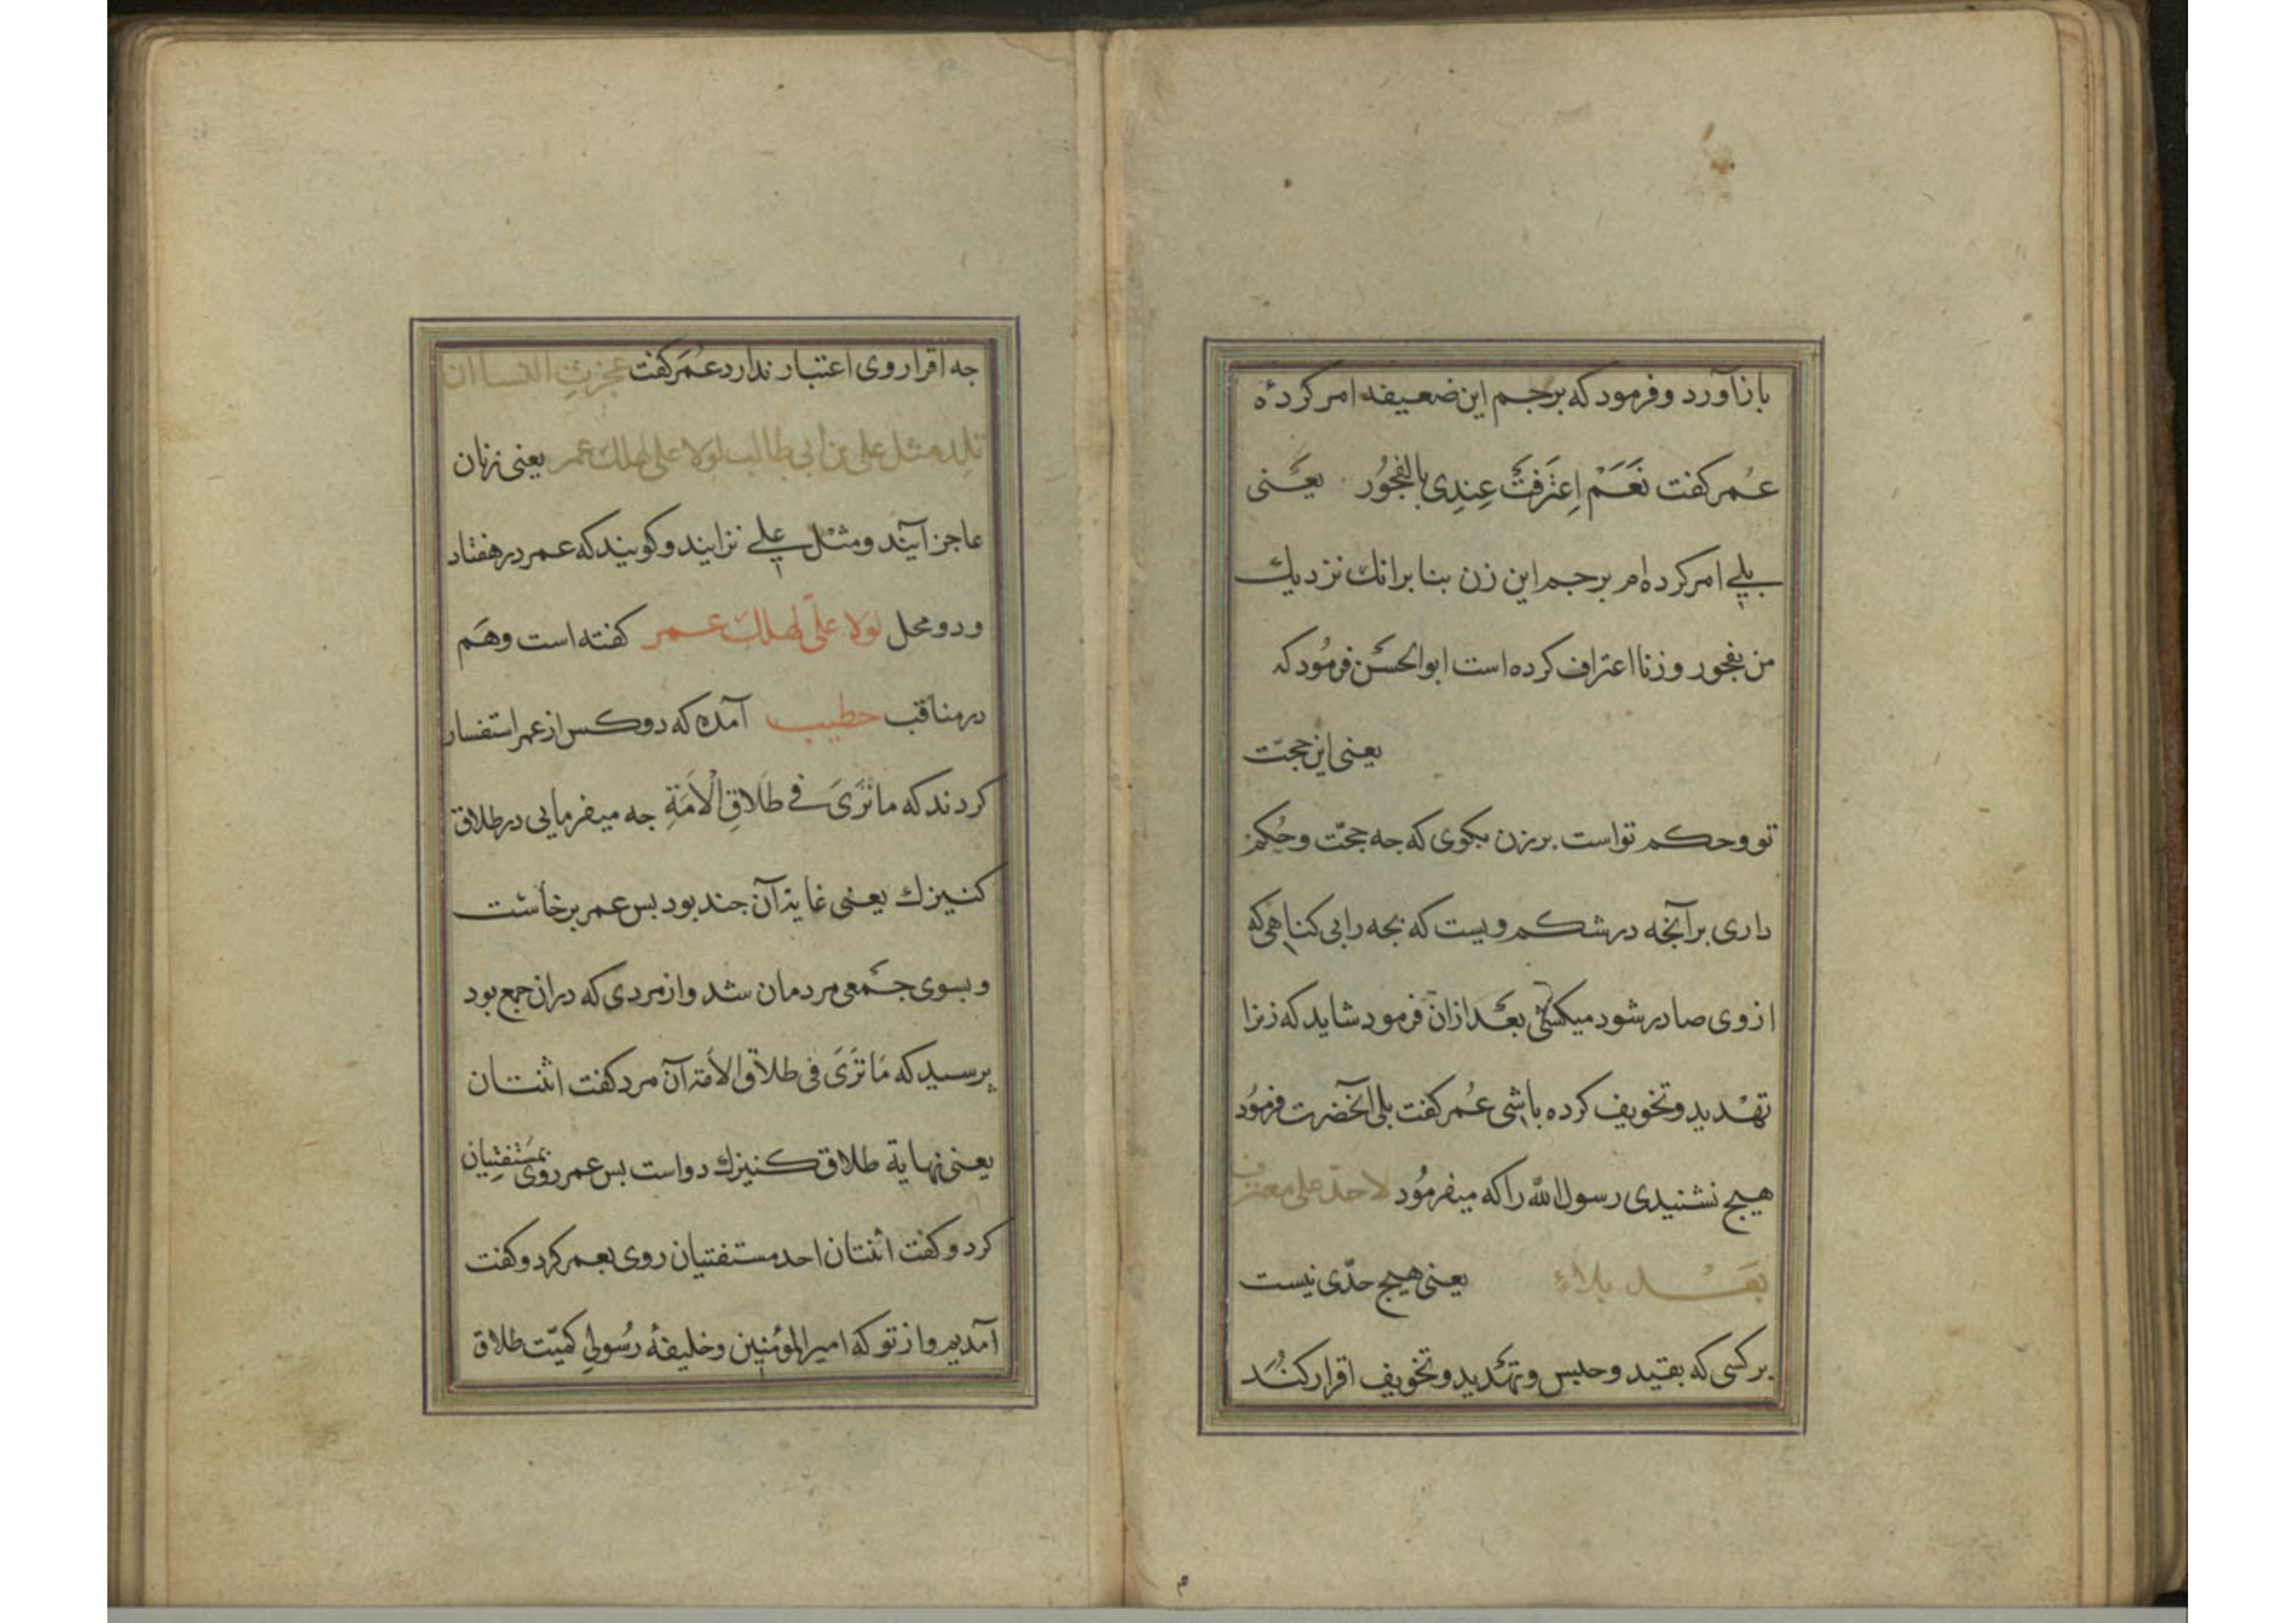 بازآورد و فرمود که برجم این ضعیفه امر کردهٔ
عُمر کفت نَعَمْ اِعتَرَفتَْ عِندِی بالفُجُور یعنی
بلی امر کرده‌ام برجم این زن بنا برانك نزدیك
من بفجور و زنا اعتراف کرده است ابوالحسن فرمُود که
یعنی این حجّت
تو و حکم تو است بر زن بکوی که جه حجّت و حُکم
داری بر آنجه در شکم ویست که بجه را بی کناهی که
از وی صادر شود میکشی بعد ازان فرمود شاید که زنرا
تهدید و تخویف کرده باشی عُمر کفت بلی آنحضرت فرمُود
هیچ نشنیدی رسول الله را که میفرمُود لا حدّ علی معترف
بَعْد بلاء یعنی هیچ حدّی نیست
بر کسی که بقید و حبس و تهدید و تخویف اقرار کند
جه اقرار وی اعتبار ندارد عُمَر کفت عجزتِ النساء ان
تلِد مثل علی بن أبی طالب لولا علی لهلك عمر یعنی زنان
عاجز آیند و مثل علی نزایند و کویند که عمر در هفتاد
و دو محل لولا علیّ لهلك عمر کفته است و هَم
در مناقب خطیب آمده که دو کس از عمر استفسار
کردند که ما تَرَیَ فی طَلَاقِ الْأَمَةِ جه میفرمایی در طلاق
کنیزك یعنی غایة آن جند بود بس عمر برخاست
و بسوی جمعی مردمان شد و از مردی که دران جمع بود
پرسید که مَا تَرَیَ فی طلاق الأمة آن مرد کفت اثنتان
یعنی نهایة طلاق کنیزك دو است بس عمر روی بمُسْتَفتِیان
کرد و کفت اثنتان احد مستفتیان روی بعمر کرد و کفت
آمدیم و از تو که امیر المؤمنین و خلیفهٔ رسُولی کمیّت طلاق